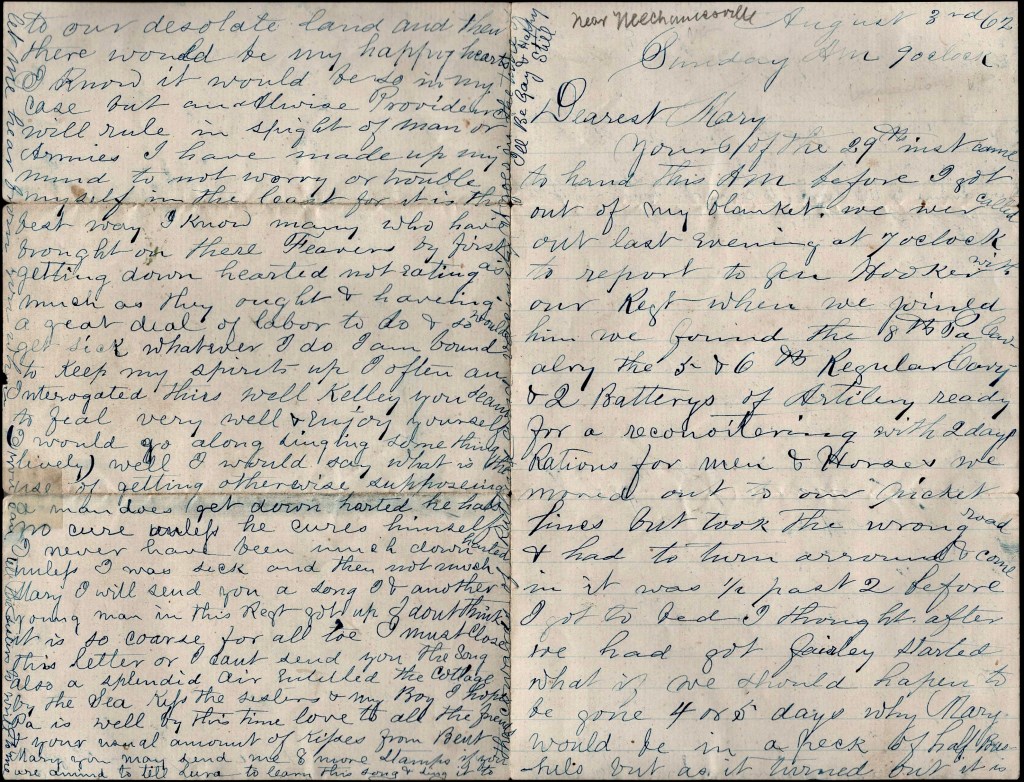 near Mechanicsville
August 3rd 62
Sunday AM 9 oclock
Dearest Mary
Yours of the 29th inst came
to hand this AM before I got
out of my blanket. we wer called
out last Evening at 7 oclock
to report to Gen Hooker with
our Regt when we joined
him we found the 8th Pa Cav
alry the 5 & 6th Regular Cavy
& 2 Batterys of Artilery ready
for a reconoitering with 2 days
Rations for men & Horses we
moved out to our Picket
lines but took the wrong road
& had to turn arround & come
in it was ½ past 2 before
I got to bed I thought after
we had got fairley started
what if we should hapen to
be gone 4 or 5 days why Mary
would be in a peck of half Bus
hels but as it turned out it is
to our desolate land and then
there would be my happy hearts
I know it would be so in my
case but an allwise Providence
will rule in spight of man or
Armies I have made up my
mind to not worry or trouble
myself in the least for it is the
best way I know many who have
brought on these Feavers by first
getting down hearted not eating as
much as they ought & haveing
a great deal of labor to do & so would
get sick whatever I do I am bound
to keep my spirits up I often am
Interogated thus well Kelley you seam
to feal very well & enjoy yourself
(I would go along singing something
lively) well I would say what is the
use of getting otherwise supposeing
a man does get down harted he has
no cure unless he cures himself
I never have been much down harted
unless I was sick and then not much
Mary I will send you a song I & another
young man in this Regt got up I dont think
it is so coarse for all toe I must close
this letter or I cant send you the Song
also a splendid Air Entitled the Cottage
by the Sea Kiss the sisters & my Boy I hope
Pa is well by this time love to all the frends
& your usual amount of kisses from Bent
Mary you may send me 6 more Stamps if you
are amind to tell Lura to learn this song & sing it to
I'll Be Gay & Happy
Still
Let me hear from you